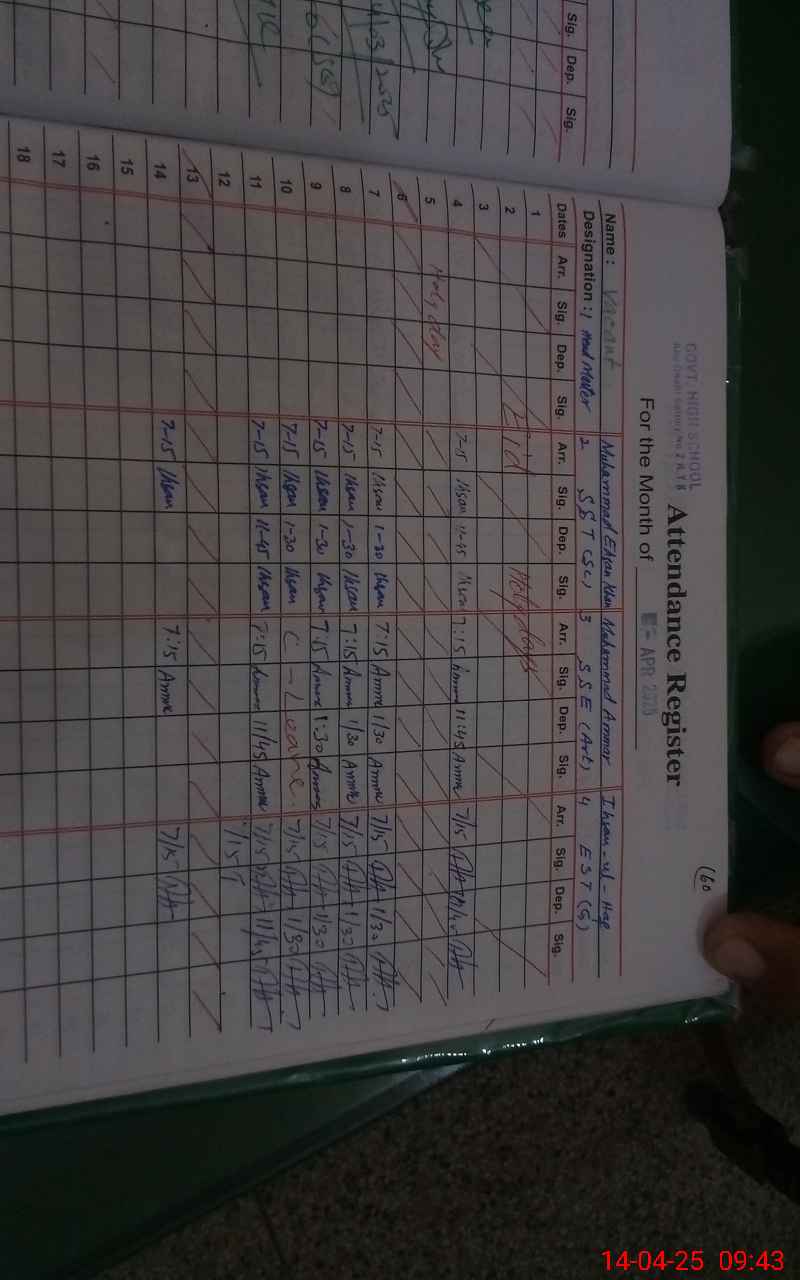 GOVT: HIGH SCHOOL
Attendance Register
(60
For the Month of APR 2025
Name : Vacant Muhammad Ehsan Khan Muhammad Ammar Ihsan-ul-Haq
Designation : 1 Head Master 2 SST (Sc) 3 SSE (Art) 4 EST (G)
Dates Arr. Sig. Dep. Sig. Arr. Sig. Dep. Sig. Arr. Sig. Dep. Sig. Arr. Sig. Dep. Sig.
1
2 Eid Holydays
3
4 7-15 Ihsan 11-45 Ihsan 7:15 Ammar 11:45 Ammar 7/15
5 Holyday
6
7 7-15 Ihsan 1-30 Ihsan 7:15 Ammar 1/30 Ammar 7/15 1/30
8 7-15 Ihsan 1-30 Ihsan 7:15 Ammar 1/30 Ammar 7/15 1/30
9 7-15 Ihsan 1-30 Ihsan 7:15 Ammar 1:30 Ammar 7/15 1/30
10 7-15 Ihsan 1-30 Ihsan C-Leave. 7/15 1/30
11 7-15 Ihsan 11-45 Ihsan 7:15 Ammar 11/45 Ammar 7/15 11/45
12
13
14 7-15 Ihsan 7:15 Ammar 7/15
15
16
17
18
Sig. Dep. Sig.
14-04-25 09:43